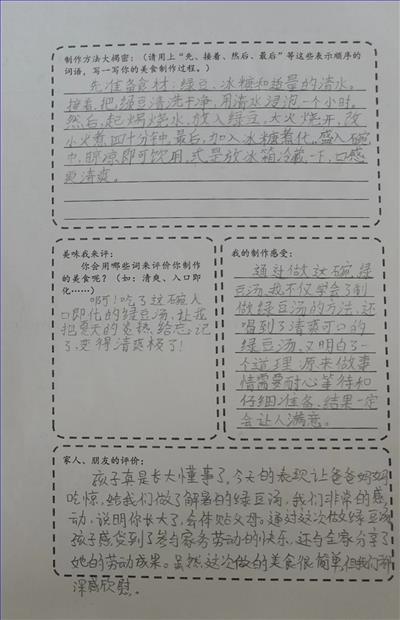 制作方法大揭密：（请用上“先、接着、然后、最后”等这些表示顺序的
词语，写一写你的美食制作过程。）
先准备食材：绿豆、冰糖和适量的清水。
接着，把绿豆清洗干净，用清水浸泡一个小时。
然后，起锅烧水，放入绿豆，大火烧开，改
小火煮四十分钟。最后，加入冰糖煮化。盛入碗
中，晾凉即可饮用。或是放冰箱冷藏一下，口感
更清爽。
美味我来评：
你会用哪些词来评价你制作
的美食呢？（如：清爽、入口即
化……）
啊！吃了这碗入
口即化的绿豆汤，让我
把夏天的炎热给忘记
了，变得清爽极了！
我的制作感受：
通过做这碗绿
豆汤，我不仅学会了制
做绿豆汤的方法，还
喝到了清爽可口的
绿豆汤，又明白了一
个道理，原来做事
情需要耐心等待和
仔细准备，结果一定
会让人满意。
家人、朋友的评价：
孩子真是长大懂事了，今天的表现让爸爸妈妈
吃惊，给我们做了解暑的绿豆汤，我们非常的感
动，说明你长大了，会体贴父母。通过这次做绿豆汤
孩子感受到了参与家务劳动的快乐，还与全家分享了
她的劳动成果。虽然这次做的美食很简单，但我们都
深感欣慰。